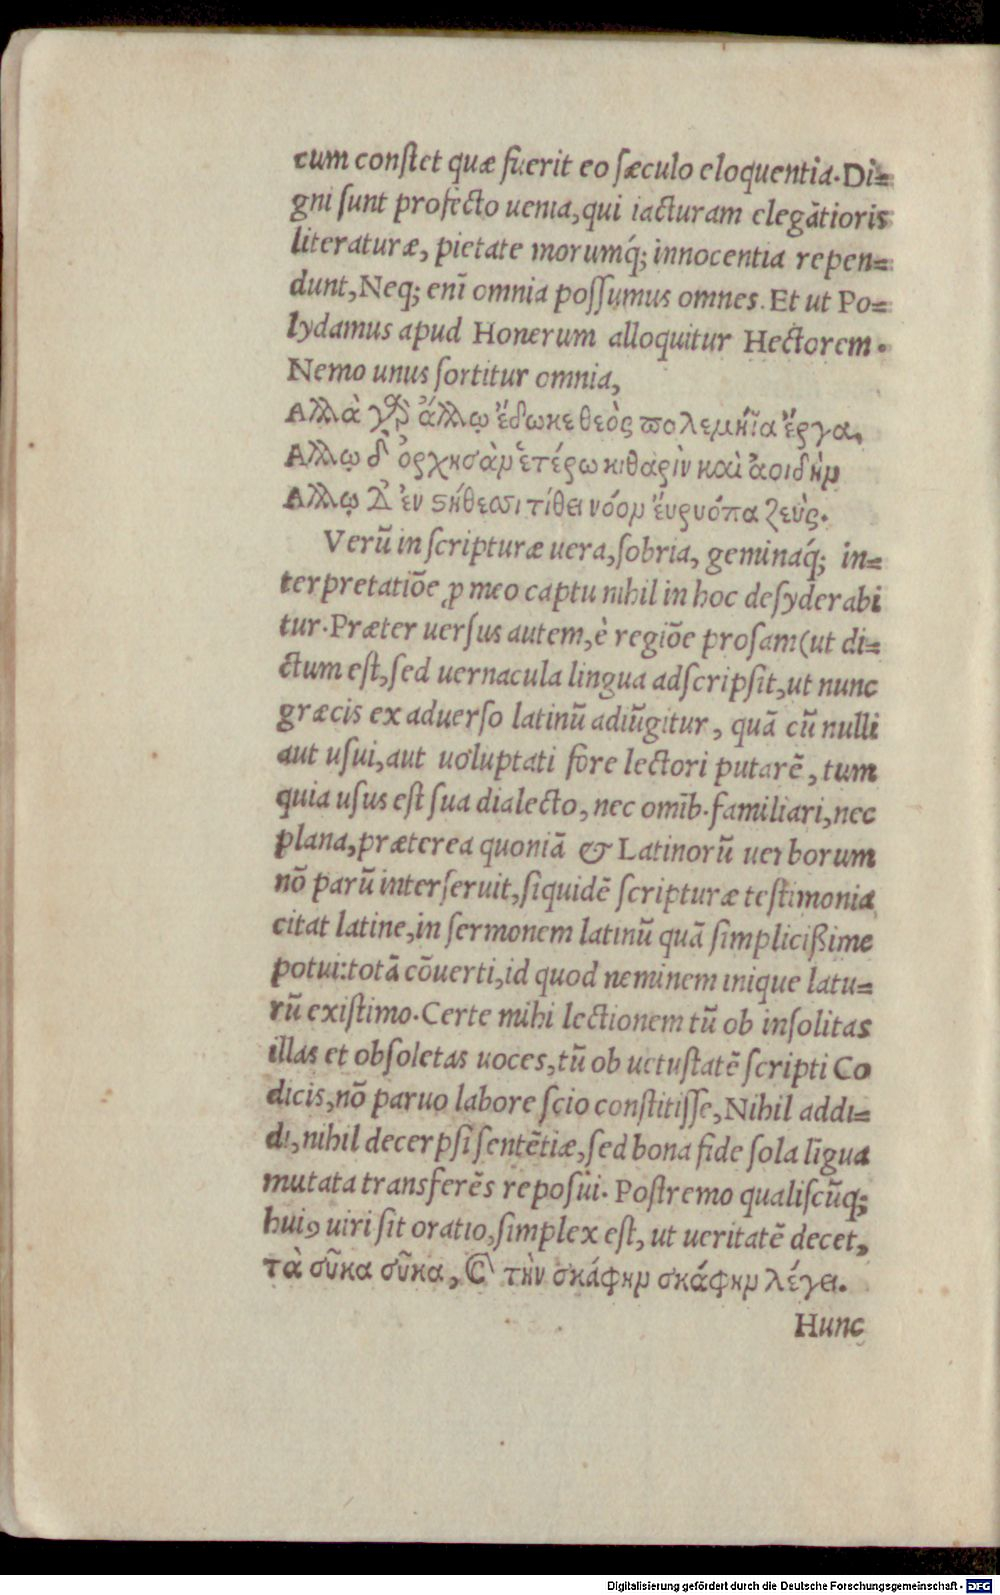 cum conſtet quæ fuerit eo ſæculo eloquentia. Di=
gni ſunt profecto uenia, qui iacturam elegãtioris
literaturæ, pietate morumq́; innocentia repen=
dunt, Neq; enĩ omnia poſſumus omnes. Et ut Po=
lydamus apud Honerum alloquitur Hectorem.
Nemo unus ſortitur omnia,
Αλλὰ γὰρ ἄλλῳ ἔδωκε θεὸς πολεμήϊα ἔργα,
Αλλῳ δ᾽ ὀρχησὰν ἑτέρω κιθαρὶν καὶ ἀοιδὴν
Αλλῳ Δ᾽ ἐν ϛήθεσσι τίθει νόον ἔυρυόπα ζεὺς.
Verũ in ſcripturæ uera, ſobria, geminaq́; in=
terpretatiõe ꝓ meo captu nihil in hoc deſyderabi
tur. Præter uerſus autem, è regiõe proſam (ut di=
ctum eſt, ſed uernacula lingua adſcripſit, ut nunc
græcis ex aduerſo latinũ adiũgitur, quã cũ nulli
aut uſui, aut uoluptati fore lectori putarẽ, tum
quia uſus eſt ſua dialecto, nec omĩb. familiari, nec
plana, præterea quoniã & Latinorũ uerborum
nõ parũ interſeruit, ſiquidẽ ſcripturæ teſtimonia
citat latine, in ſermonem latinũ quã ſimplicißime
potui: totã cõuerti, id quod neminem inique latu=
rũ exiſtimo. Certe mihi lectionem tũ ob inſolitas
illas et obſoletas uoces, tũ ob uetuſtatẽ ſcripti Co
dicis, nõ paruo labore ſcio conſtitiſſe, Nihil addi=
di, nihil decerpſi ſentẽtiæ, ſed bona fide ſola lĩgua
mutata transferẽs repoſui. Poſtremo qualiſcũq;
huiꝰ uiri ſit oratio, ſimplex eſt, ut ueritatẽ decet,
τὰ σῦκα σῦκα, Ⲥ τὴν σκάφην σκάφην λέγει.
Hunc
Digitalisierung gefördert durch die Deutsche Forschungsgemeinschaft - DFG